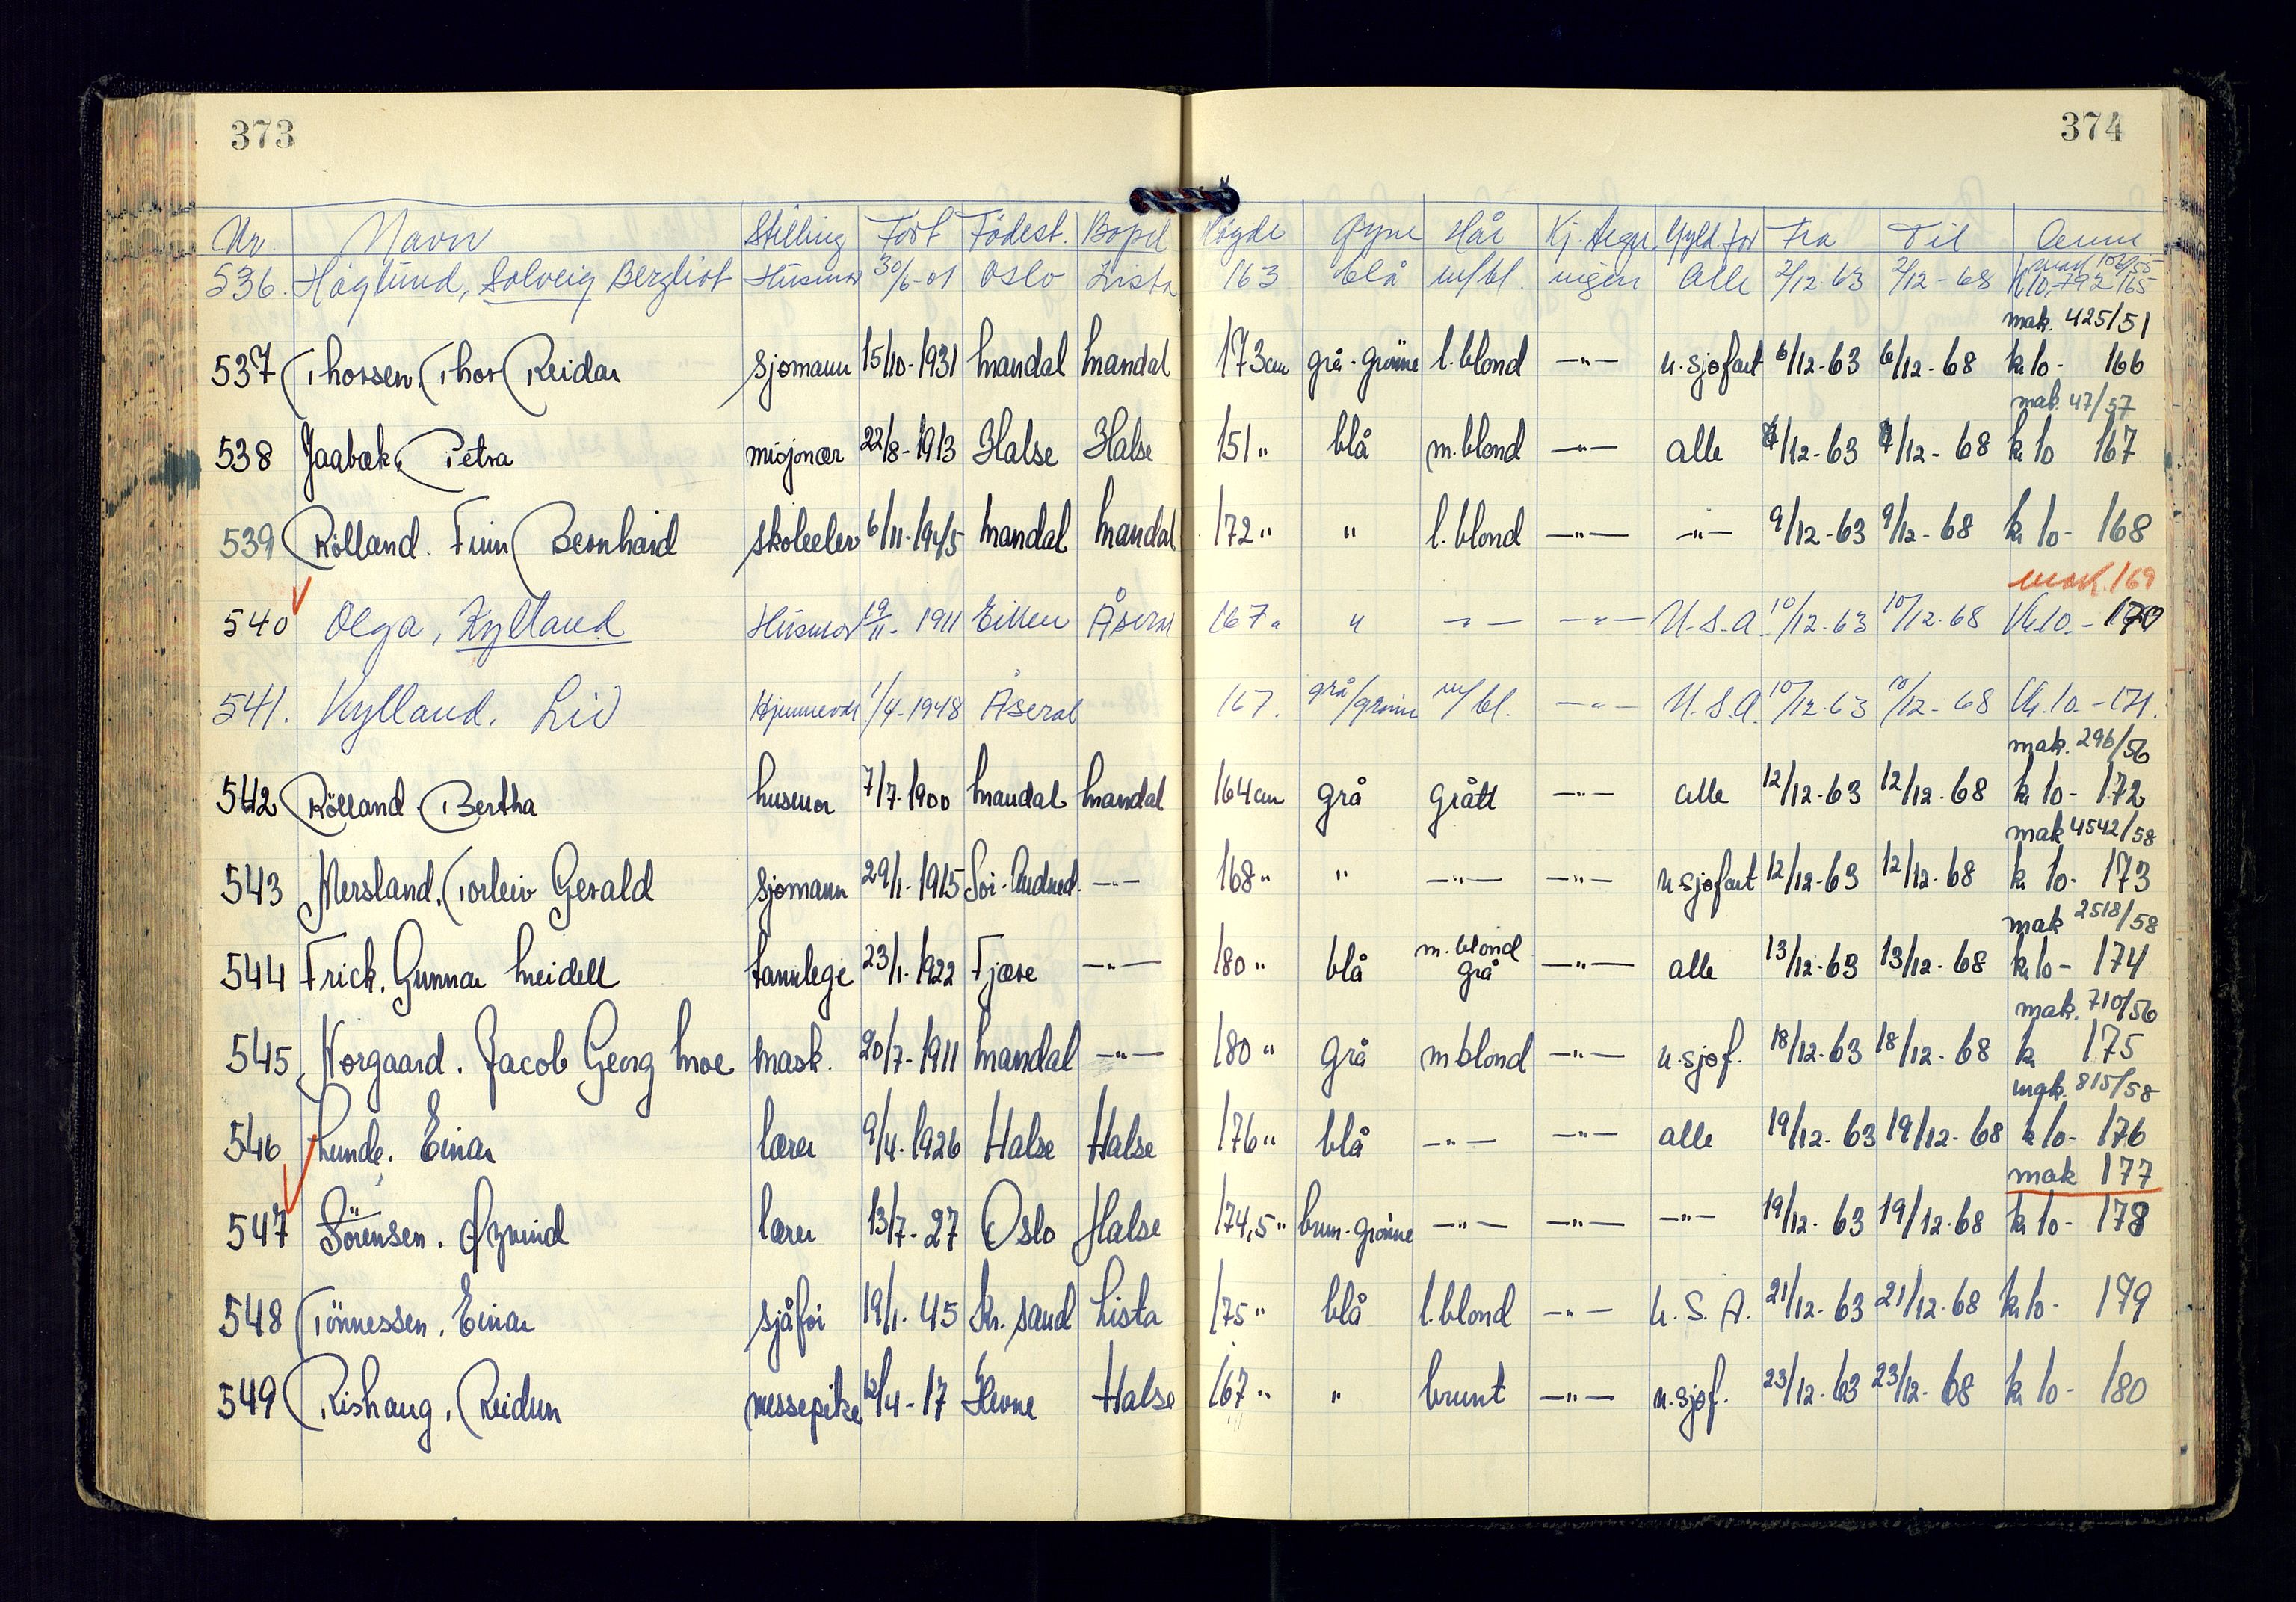 373
374
Nr. Navn Stilling Født Födest. Bopel Högde Øyne Hår Kj.tegn Gyld.for Fra Til Anm
536. Höglund, Solveig Bergliot Husmor 30/6-01 Oslo Lista 163 blå m/bl. ingen Alle 2/12-63 2/12-68 Kr10,-792 165
mak. 425/51
537 Thorsen. Thor Reidar sjømann 15/10-1931 Mandal Mandal 173cm grå-grönne l.blond —"— u.sjøfart 6/12-63 6/12-68 kr 10- 166
mak. 47/57
538 Jaabæk, Petra misjonær 22/8-1913 Halse Halse 151 " blå m.blond —"— alle /12-63 /12-68 kr 10 167
539 Rölland. Finn Bernhard skoleelev 6/11-1945 Mandal Mandal 172 " " l.blond —"— —"— 9/12-63 9/12-68 kr 10- 168
mak. 169
540 Olga, Kylland Husmor 19/11-1911 Eiken Åseral 167 " " —"— —"— U.S.A. 10/12-63 10/12-68 Kr.10.- 170
541. Kylland. Liv Hjemmevær 1/4-1948 Åseral 167. grå/grönne m/bl. —"— U.S.A. 10/12-63 10/12-68 Kr.10.-171.
mak. 296/56
542 Rölland Bertha husmor 7/7-1900 Mandal Mandal 164cm grå grått —"— alle 12/12-63 12/12-68 kr 10- 172
mak 4542/58
543 Mersland. Torleiv Gerald sjømann 29/1-1915 Sør-Audned. —"— 168 " " —"— —"— u sjøfart 12/12-63 12/12-68 kr 10- 173
mak 2518/58
544 Frick. Gunnar Meidell tannlege 23/1-1922 Fjære —"— 180 " blå m.blond grå —"— alle 13/12-63 13/12-68 kr 10- 174
mak. 710/56
545 Norgaard. Jacob Georg Moe mask. 20/7-1911 Mandal —"— 180 " grå m.blond —"— u.sjøf. 18/12-63 18/12-68 kr 175
mak. 815/58
546 Lunde. Einar lærer 9/4-1926 Halse Halse 176 " blå —"— —"— alle 19/12-63 19/12-68 kr 10- 176
mak 177
547 Sörensen. Øyvind lærer 13/7-27 Oslo Halse 174,5 " brun-grönne —"— —"— —"— 19/12-63 19/12-68 kr 10- 178
548 Tönnessen. Einar sjåför 19/1-45 Kr.sand Lista 175 " blå l.blond —"— U.S.A. 21/12-63 21/12-68 kr 10- 179
549 Rishaug, Reidun messepike 12/4-17 Hevne Halse 167 " " brunt —"— u.sjøf. 23/12-63 23/12-68 kr 10- 180